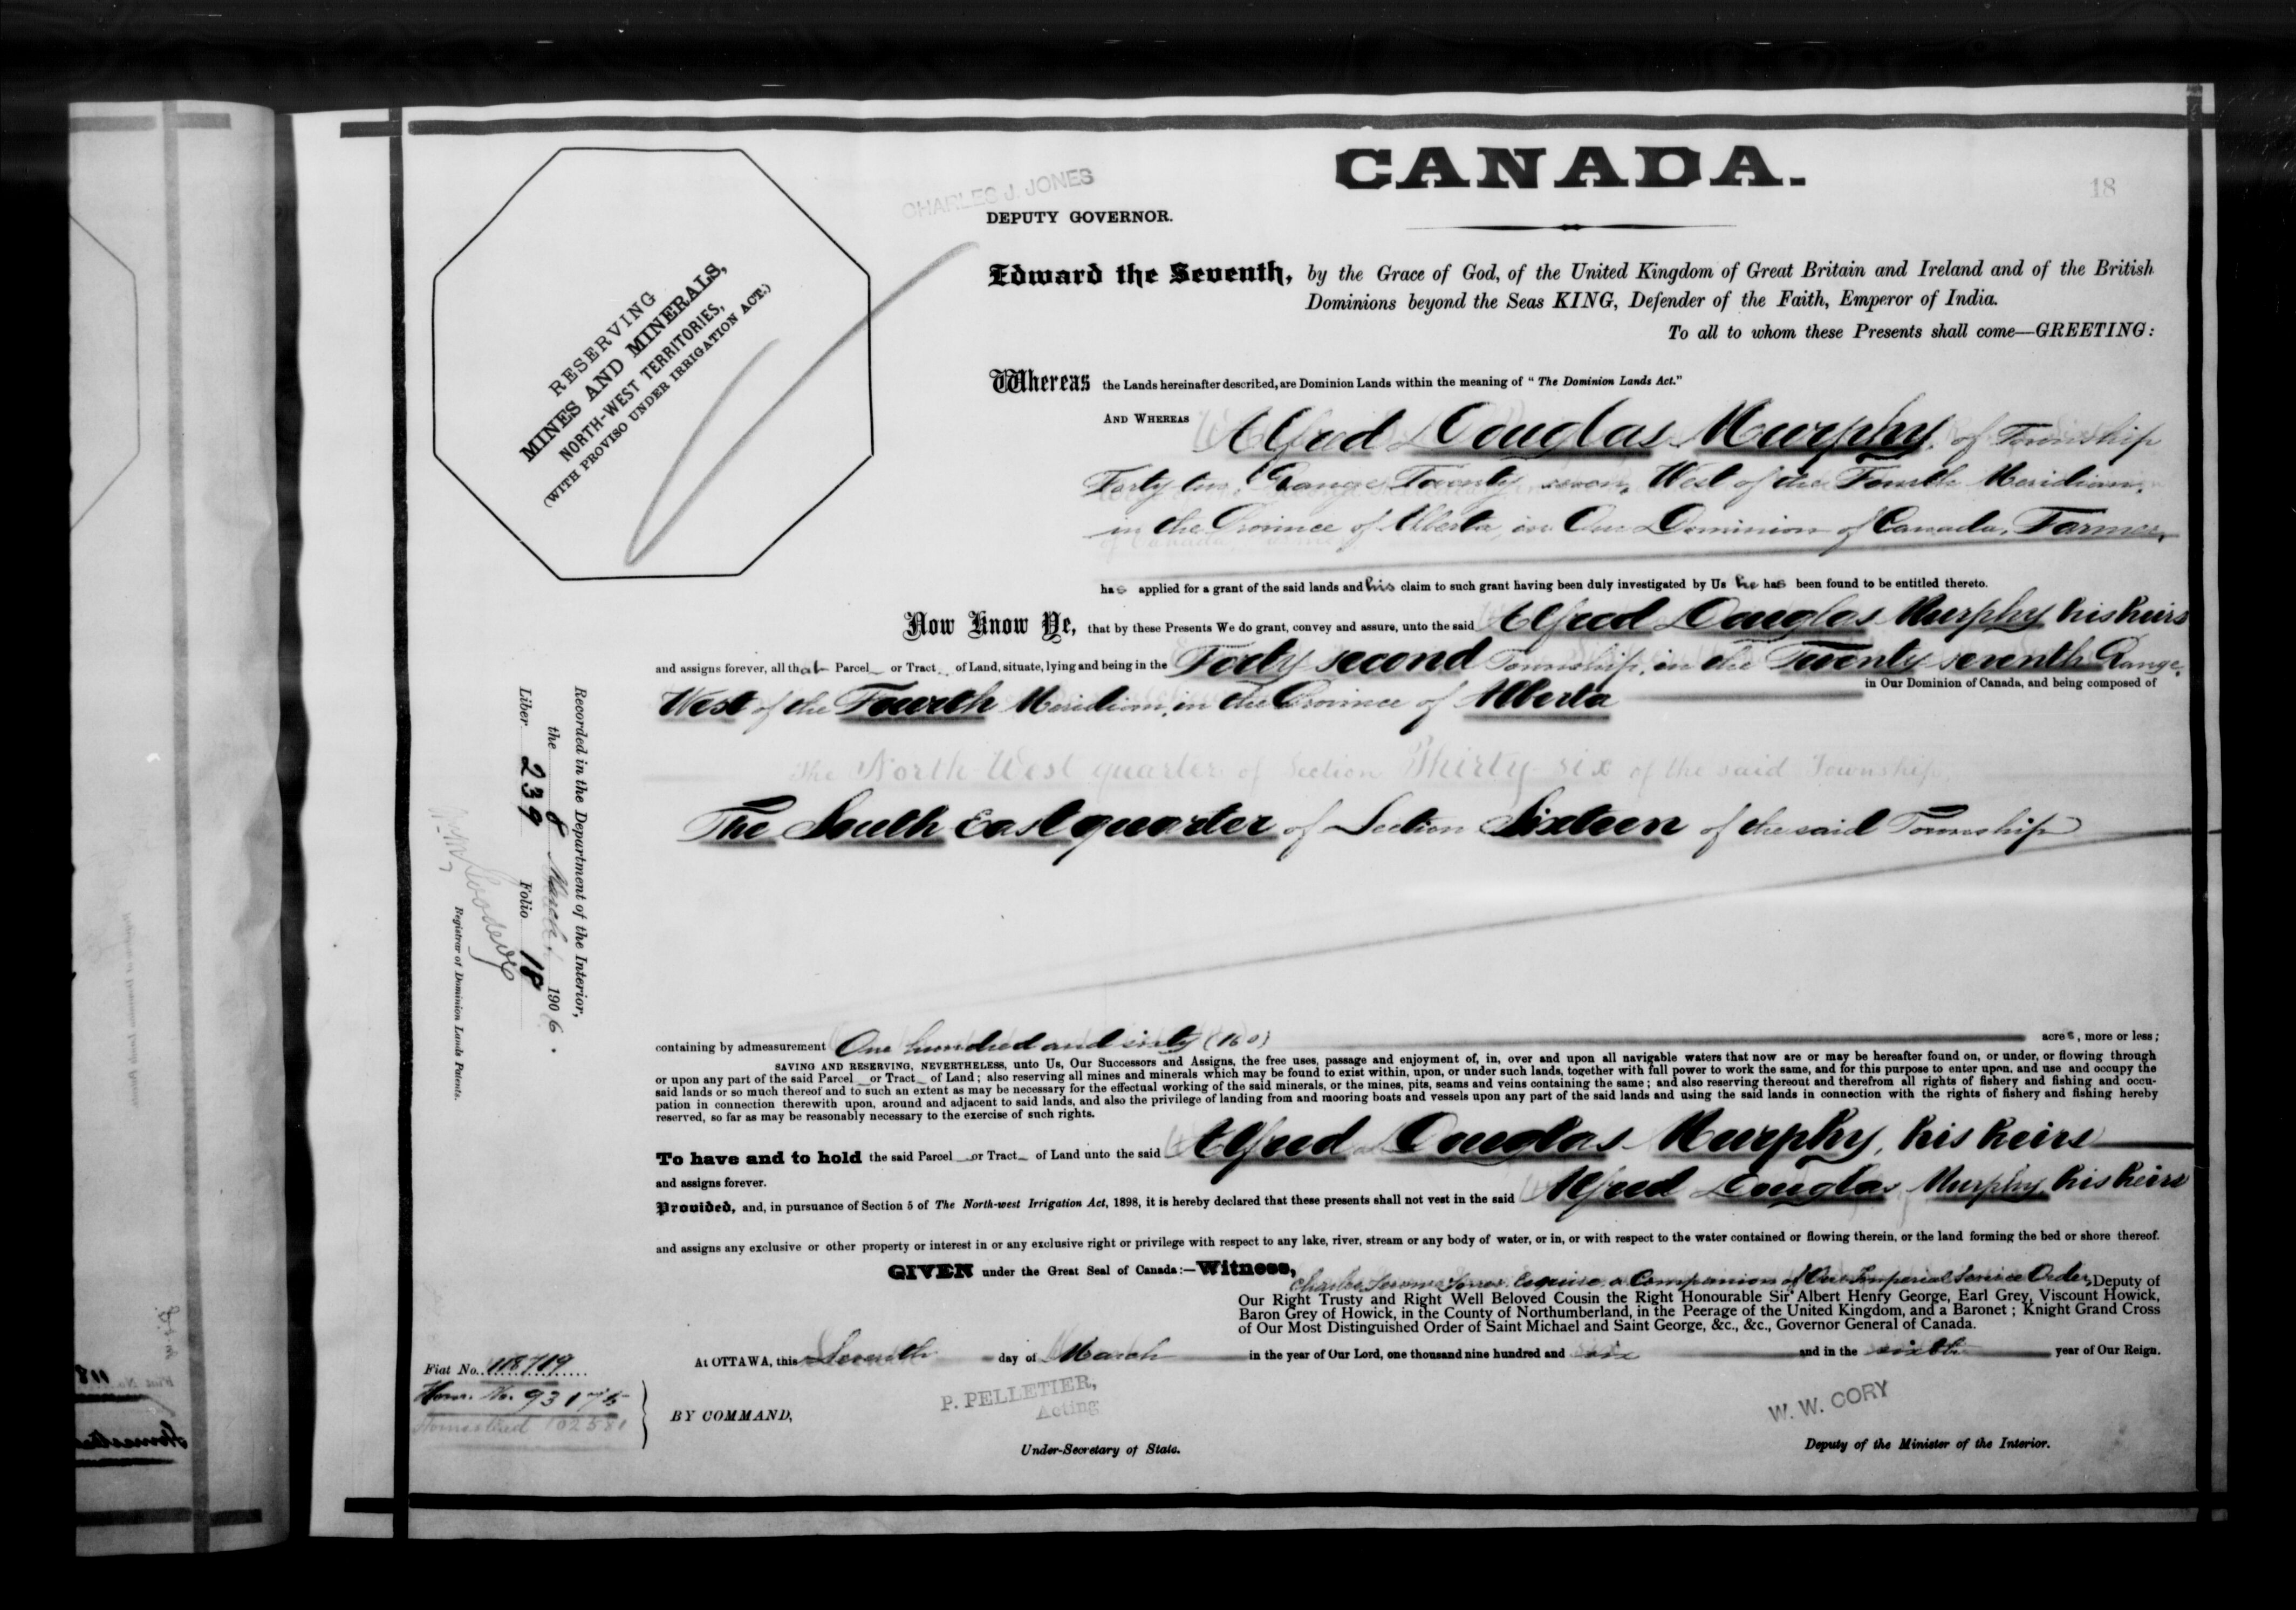 CANADA.
18
CHARLES J. JONES
DEPUTY GOVERNOR.
RESERVING
MINES AND MINERALS,
NORTH-WEST TERRITORIES,
(WITH PROVISO UNDER IRRIGATION ACT.)
Edward the Seventh, by the Grace of God, of the United Kingdom of Great Britain and Ireland and of the British
Dominions beyond the Seas KING, Defender of the Faith, Emperor of India.
To all to whom these Presents shall come—GREETING:
Whereas the Lands hereinafter described, are Dominion Lands within the meaning of "The Dominion Lands Act."
AND WHEREAS Alfred Douglas Murphy, of Township
Forty two, Range Twenty seven, West of the Fourth Meridian,
in the Province of Alberta, in Our Dominion of Canada, Farmer,
has applied for a grant of the said lands and his claim to such grant having been duly investigated by Us he has been found to be entitled thereto.
Now Know Ye, that by these Presents We do grant, convey and assure, unto the said Alfred Douglas Murphy his heirs
and assigns forever, all that Parcel or Tract of Land, situate, lying and being in the Forty second Township, in the Twenty seventh Range
West of the Fourth Meridian, in the Province of Alberta in Our Dominion of Canada, and being composed of
The North West quarter of Section Thirty six of the said Township,
The South East quarter of Section Sixteen of the said Township
containing by admeasurement One hundred and sixty (160) acres, more or less;
SAVING AND RESERVING, NEVERTHELESS, unto Us, Our Successors and Assigns, the free uses, passage and enjoyment of, in, over and upon all navigable waters that now are or may be hereafter found on, or under, or flowing through
or upon any part of the said Parcel or Tract of Land; also reserving all mines and minerals which may be found to exist within, upon, or under such lands, together with full power to work the same, and for this purpose to enter upon, and use and occupy the
said lands or so much thereof and to such an extent as may be necessary for the effectual working of the said minerals, or the mines, pits, seams and veins containing the same; and also reserving thereout and therefrom all rights of fishery and fishing and occu-
pation in connection therewith upon, around and adjacent to said lands, and also the privilege of landing from and mooring boats and vessels upon any part of the said lands and using the said lands in connection with the rights of fishery and fishing hereby
reserved, so far as may be reasonably necessary to the exercise of such rights.
To have and to hold the said Parcel or Tract of Land unto the said Alfred Douglas Murphy, his heirs
and assigns forever.
Provided, and, in pursuance of Section 5 of The North-west Irrigation Act, 1898, it is hereby declared that these presents shall not vest in the said Alfred Douglas Murphy his heirs
and assigns any exclusive or other property or interest in or any exclusive right or privilege with respect to any lake, river, stream or any body of water, or in, or with respect to the water contained or flowing therein, or the land forming the bed or shore thereof.
GIVEN under the Great Seal of Canada:—Witness,
Charles Jerome Jones Esquire, a Companion of Our Imperial Service Order, Deputy of
Our Right Trusty and Right Well Beloved Cousin the Right Honourable Sir Albert Henry George, Earl Grey, Viscount Howick,
Baron Grey of Howick, in the County of Northumberland, in the Peerage of the United Kingdom, and a Baronet; Knight Grand Cross
of Our Most Distinguished Order of Saint Michael and Saint George, &c., &c., Governor General of Canada.
At OTTAWA, this Seventh day of March in the year of Our Lord, one thousand nine hundred and six and in the sixth year of Our Reign.
BY COMMAND,
P. PELLETIER,
Acting
Under-Secretary of State.
W. W. CORY
Deputy of the Minister of the Interior.
Fiat No. 118719
Hom. No.
Homestead 102581
Recorded in the Department of the Interior,
the 8 March 1906.
Liber 239 Folio 18
Registrar of Dominion Lands Patents.